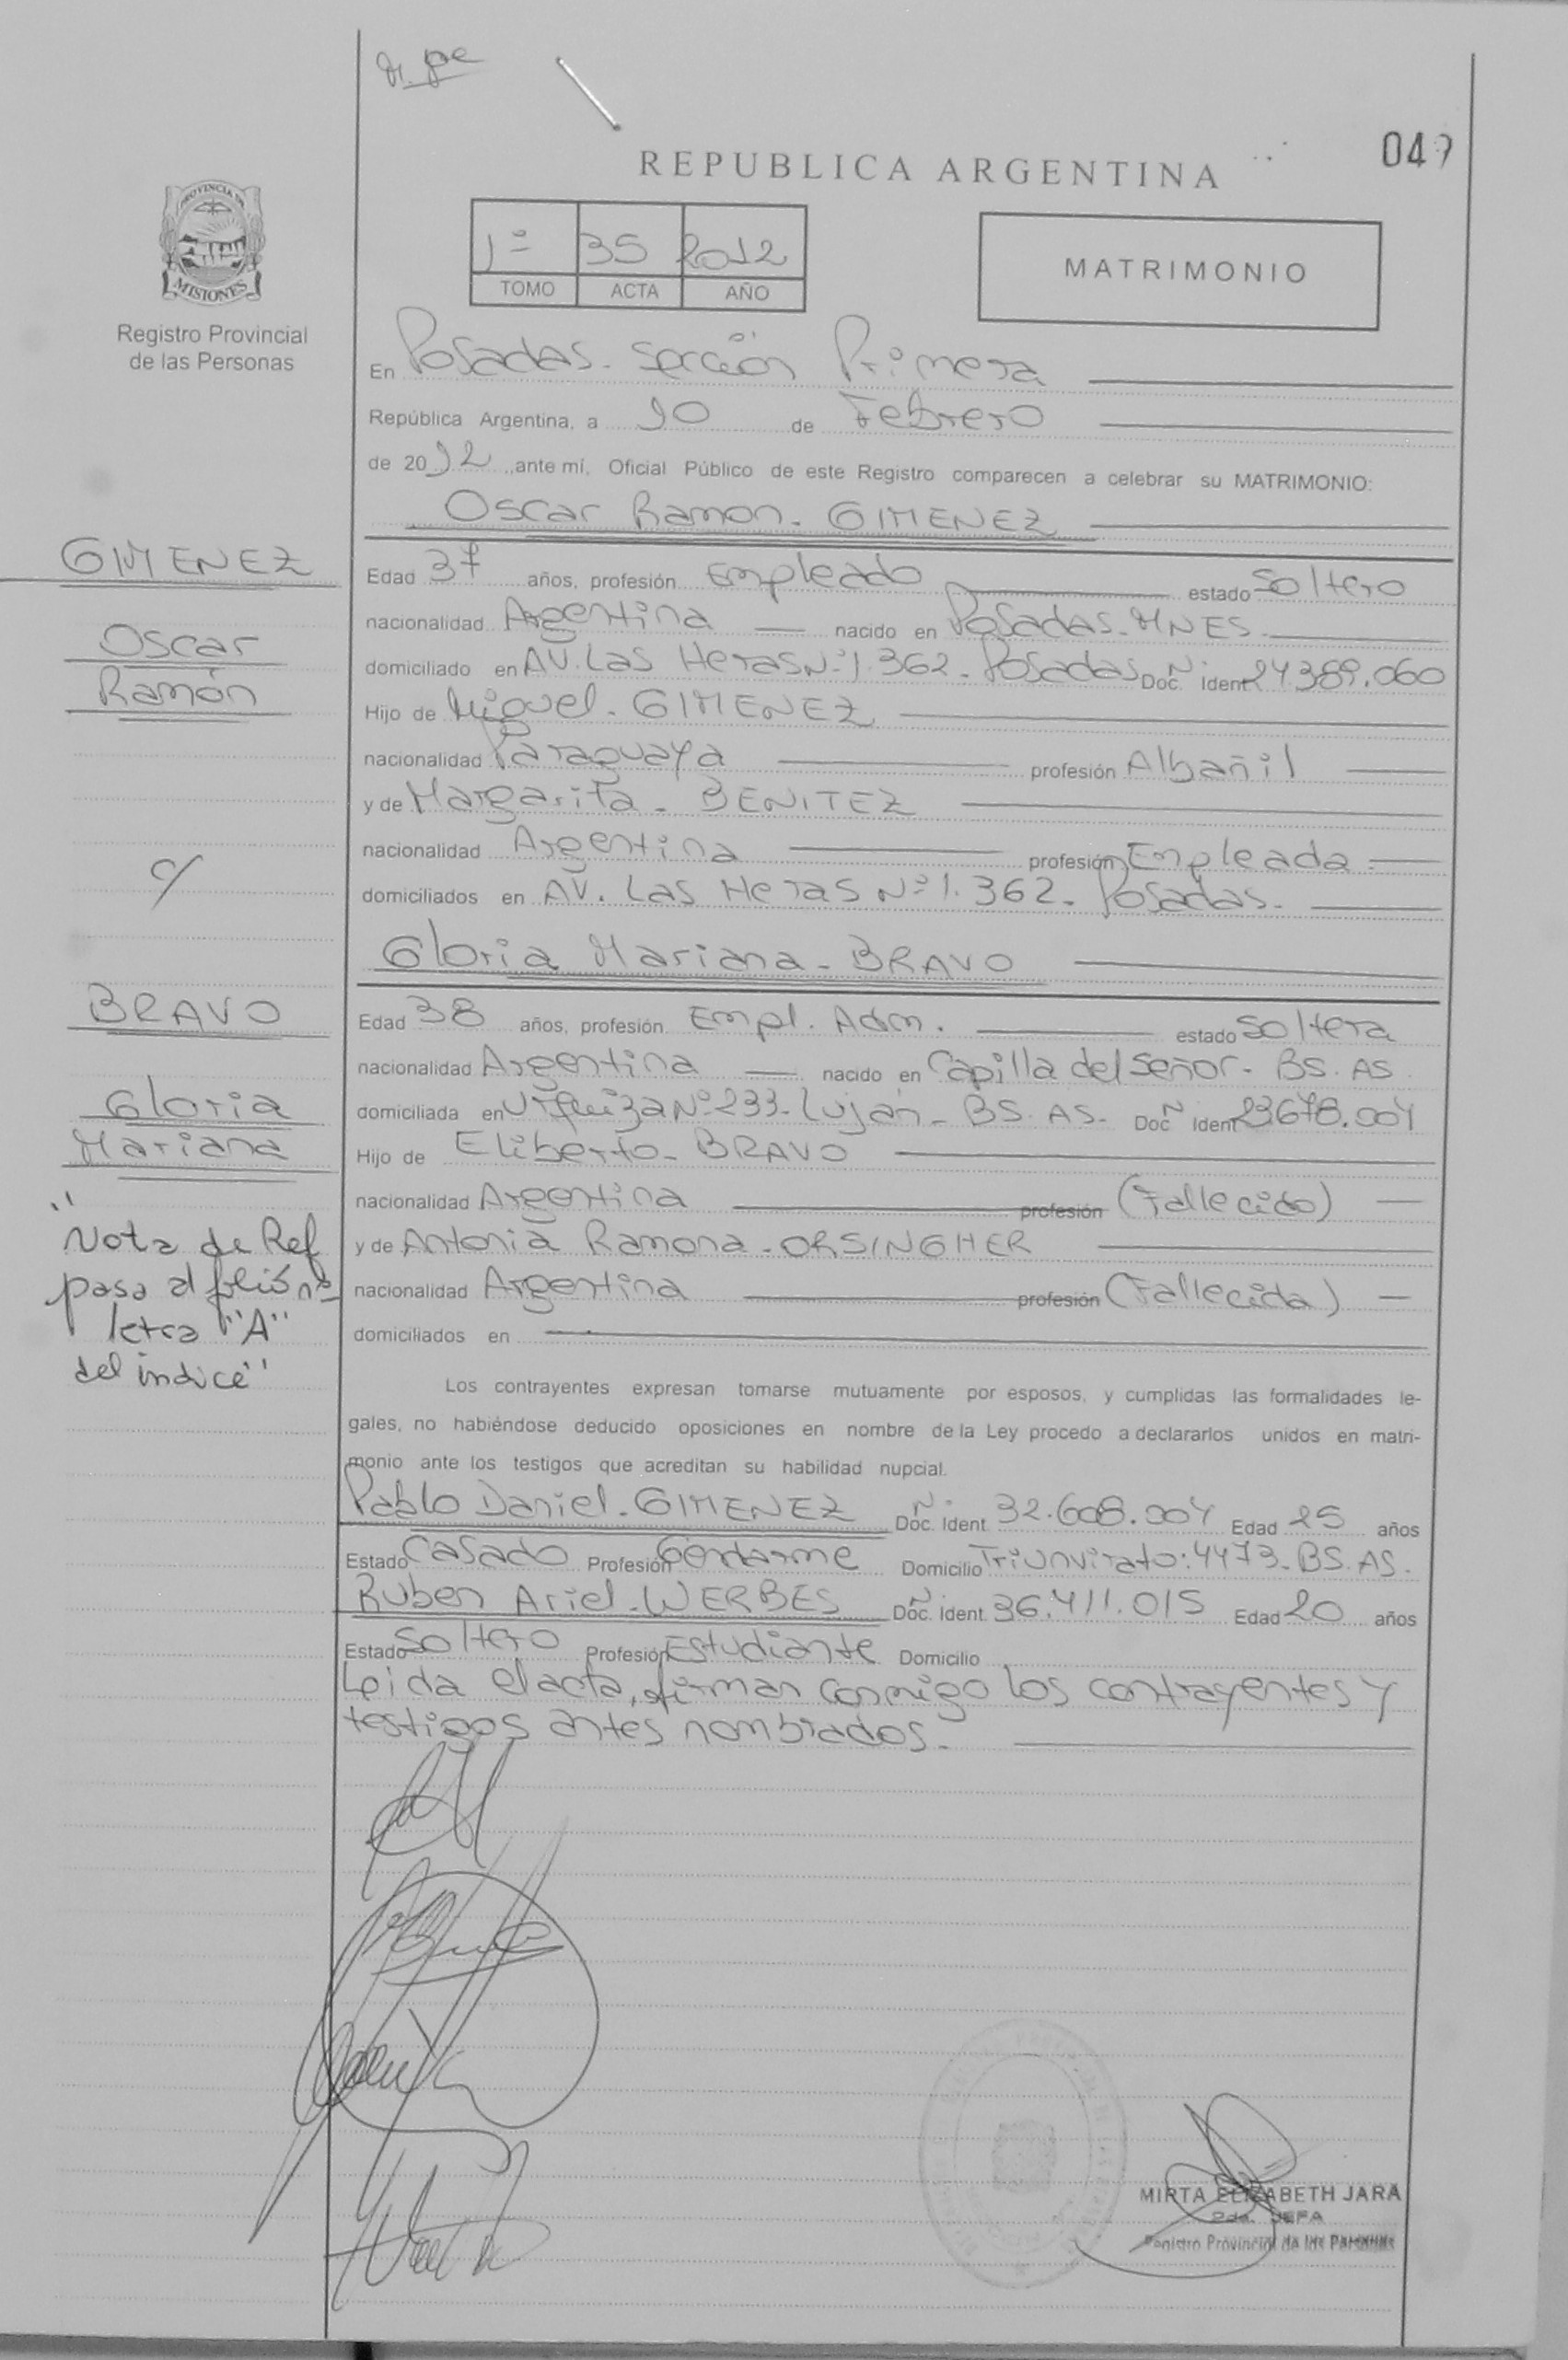 049
REPUBLICA ARGENTINA
PROVINCIA DE
MISIONES
Registro Provincial
de las Personas
1º 35 2012
TOMO ACTA AÑO
MATRIMONIO
En Posadas - Sección Primera
República Argentina, a 10 de Febrero
de 2012 ante mí, Oficial Público de este Registro comparecen a celebrar su MATRIMONIO:
Oscar Ramon - GIMENEZ
GIMENEZ
Oscar
Ramón
Edad 37 años, profesión Empleado estado Soltero
nacionalidad Argentina nacido en Posadas - MNES.
domiciliado en AV. Las Heras Nº 1.362 - Posadas Doc. Ident Nº 24389.060
Hijo de Miguel - GIMENEZ
nacionalidad Paraguaya profesión Albañil
y de Margarita - BENITEZ
nacionalidad Argentina profesión Empleada
domiciliados en AV. Las Heras Nº 1.362 - Posadas.
c/
Gloria Mariana - BRAVO
BRAVO
Gloria
Mariana
Edad 38 años, profesión Empl. Adm. estado Soltera
nacionalidad Argentina nacido en Capilla del Señor - BS. AS
domiciliada en Urquiza Nº 233 - Luján - BS. AS. Doc Ident Nº 23678.004
Hijo de Eliberto - BRAVO
nacionalidad Argentina profesión (Fallecido)
y de Antonia Ramona - ORSINGHER
nacionalidad Argentina profesión (Fallecida)
domiciliados en
"Nota de Ref
pasa al folió nº
letra "A"
del indice"
Los contrayentes expresan tomarse mutuamente por esposos, y cumplidas las formalidades le-
gales, no habiéndose deducido oposiciones en nombre de la Ley procedo a declararlos unidos en matri-
monio ante los testigos que acreditan su habilidad nupcial.
Pablo Daniel - GIMENEZ Doc. Ident Nº 32.608.004 Edad 25 años
Estado Casado Profesión Gendarme Domicilio Triunvirato: 4473 - BS. AS.
Ruben Ariel - WERBES Doc. Ident. Nº 36.411.015 Edad 20 años
Estado Soltero Profesión Estudiante Domicilio
Leida el acta, firman conmigo los contrayentes y
testigos antes nombrados.
MIRTA ELIZABETH JARA
2da. JEFA
Registro Provincial de las Personas